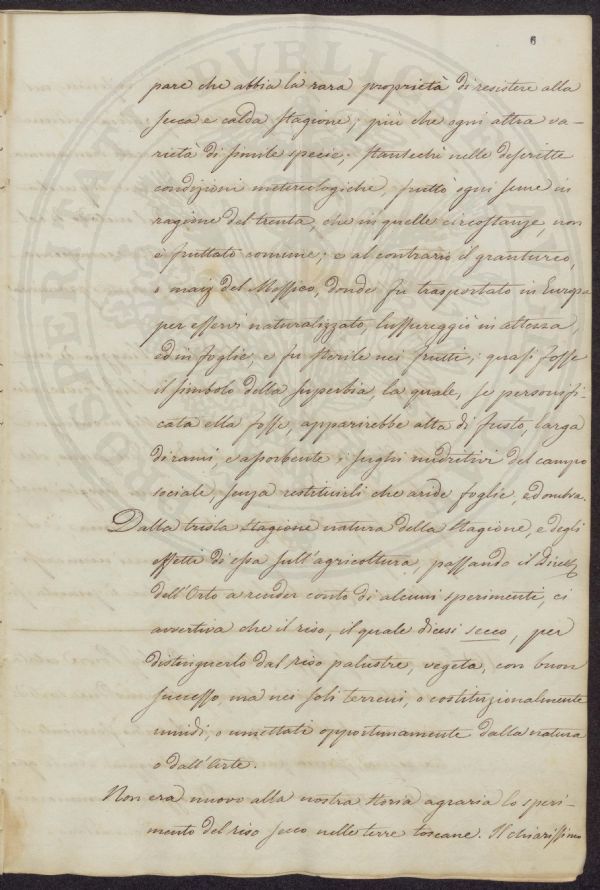 6
pare che abbia la rara proprietà di resistere alla
secca e calda stagione, più che ogni altra va-
rietà di simile specie; stantechè nelle descritte
condizioni metereologiche, fruttò ogni seme in
ragione del trenta, che in quelle circostanze, non
è fruttato comune; e al contrario il granturco,
o maiz del Messico, donde fu trasportato in Europa
per esservi naturalizzato, lussureggiò in altezza,
ed in foglie, e fu sterile nei frutti; quasi fosse
il simbolo della superbia, la quale, se personifi-
cata ella fosse, apparirebbe alta di fusto, larga
di rami, e assorbente i sughi nudritivi del campo
sociale, senza restituirli che aride foglie, ed ombra.
Dalla trista stagione natura della stagione, e degli
effetti di essa sull'agricoltura, passando il Dirett
dell'Orto a render conto di alcuni sperimenti, ci
avvertiva che il riso, il quale dicesi secco, per
distinguerlo dal riso palustre, vegeta, con buon
successo, ma nei soli terreni, o costituzionalmente
umidi, o umettati opportunamente dalla natura
o dall'Arte.
Non era nuovo alla nostra storia agraria lo speri-
mento del riso secco nelle terre toscane. Il chiarissimo